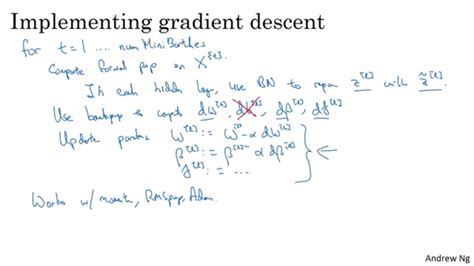 Implementing gradient descent
for t=1 .... num MiniBatches
Compute forward prop on X^{t}.
In each hidden layer, use BN to replace z^[l] with z̃^[l].
Use backprop to compute dw^[l], db^[l], dβ^[l], dγ^[l]
Update parameters w^[l] := w^[l] - α dw^[l]
β^[l] := β^[l] - α dβ^[l]
γ^[l] := ...
Works w/ momentum, RMSprop, Adam.
Andrew Ng